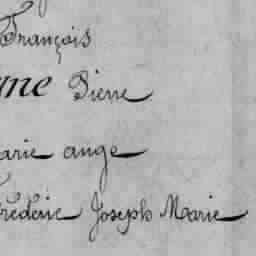 François
me Pierre
arie ange
Frédéric Joseph Marie